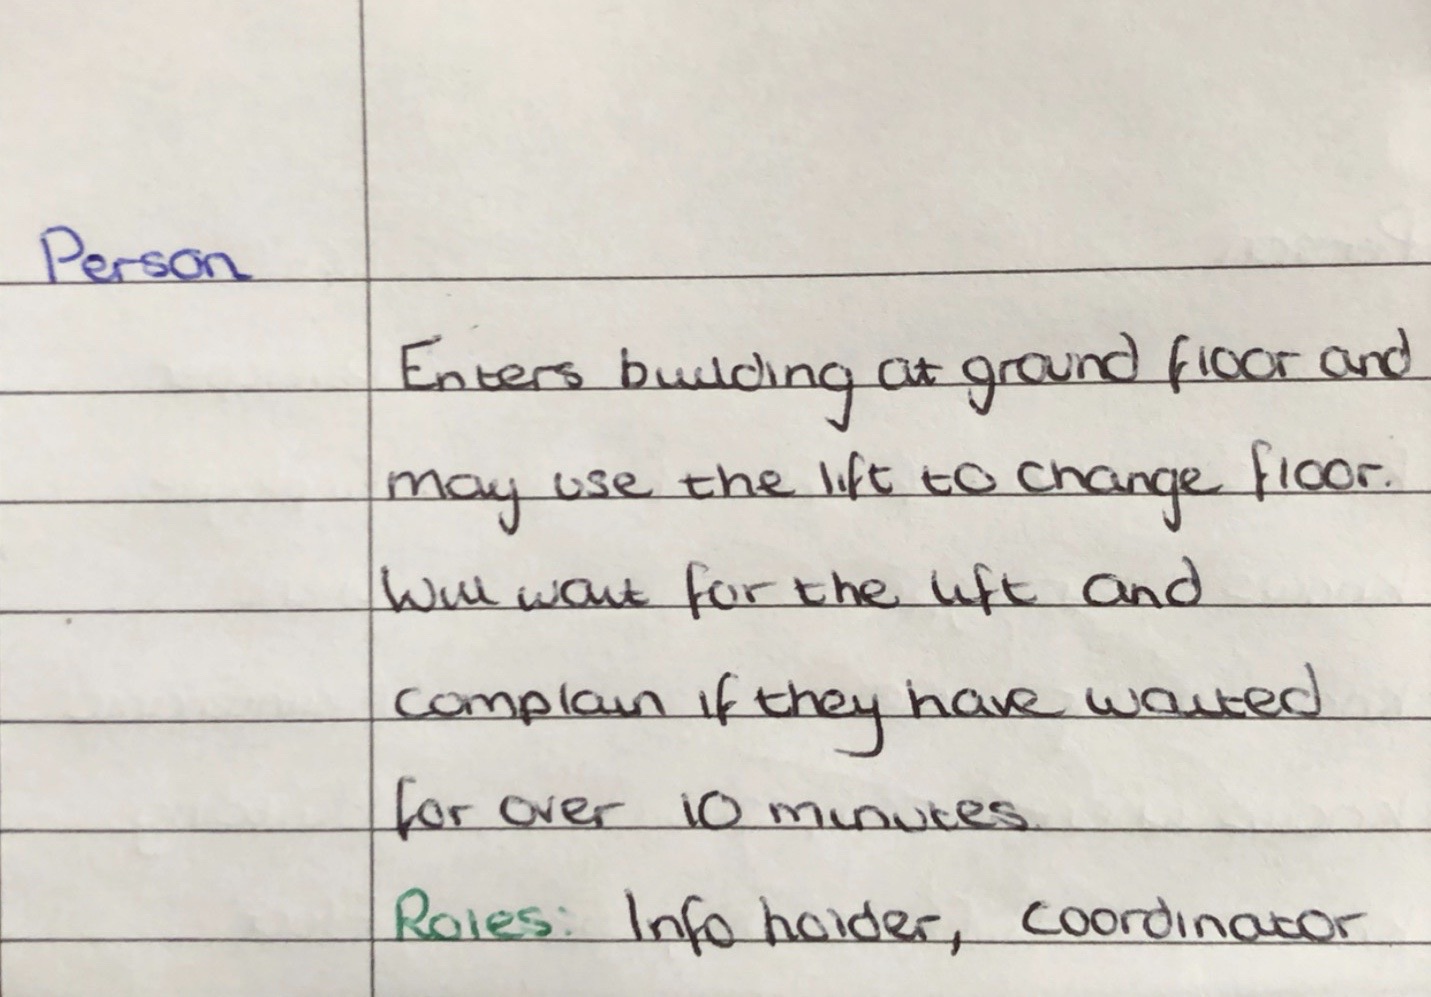 Person
Enters building at ground floor and
may use the lift to change floor.
Will wait for the lift and
complain if they have waited
for over 10 minutes.
Roles: Info holder, coordinator